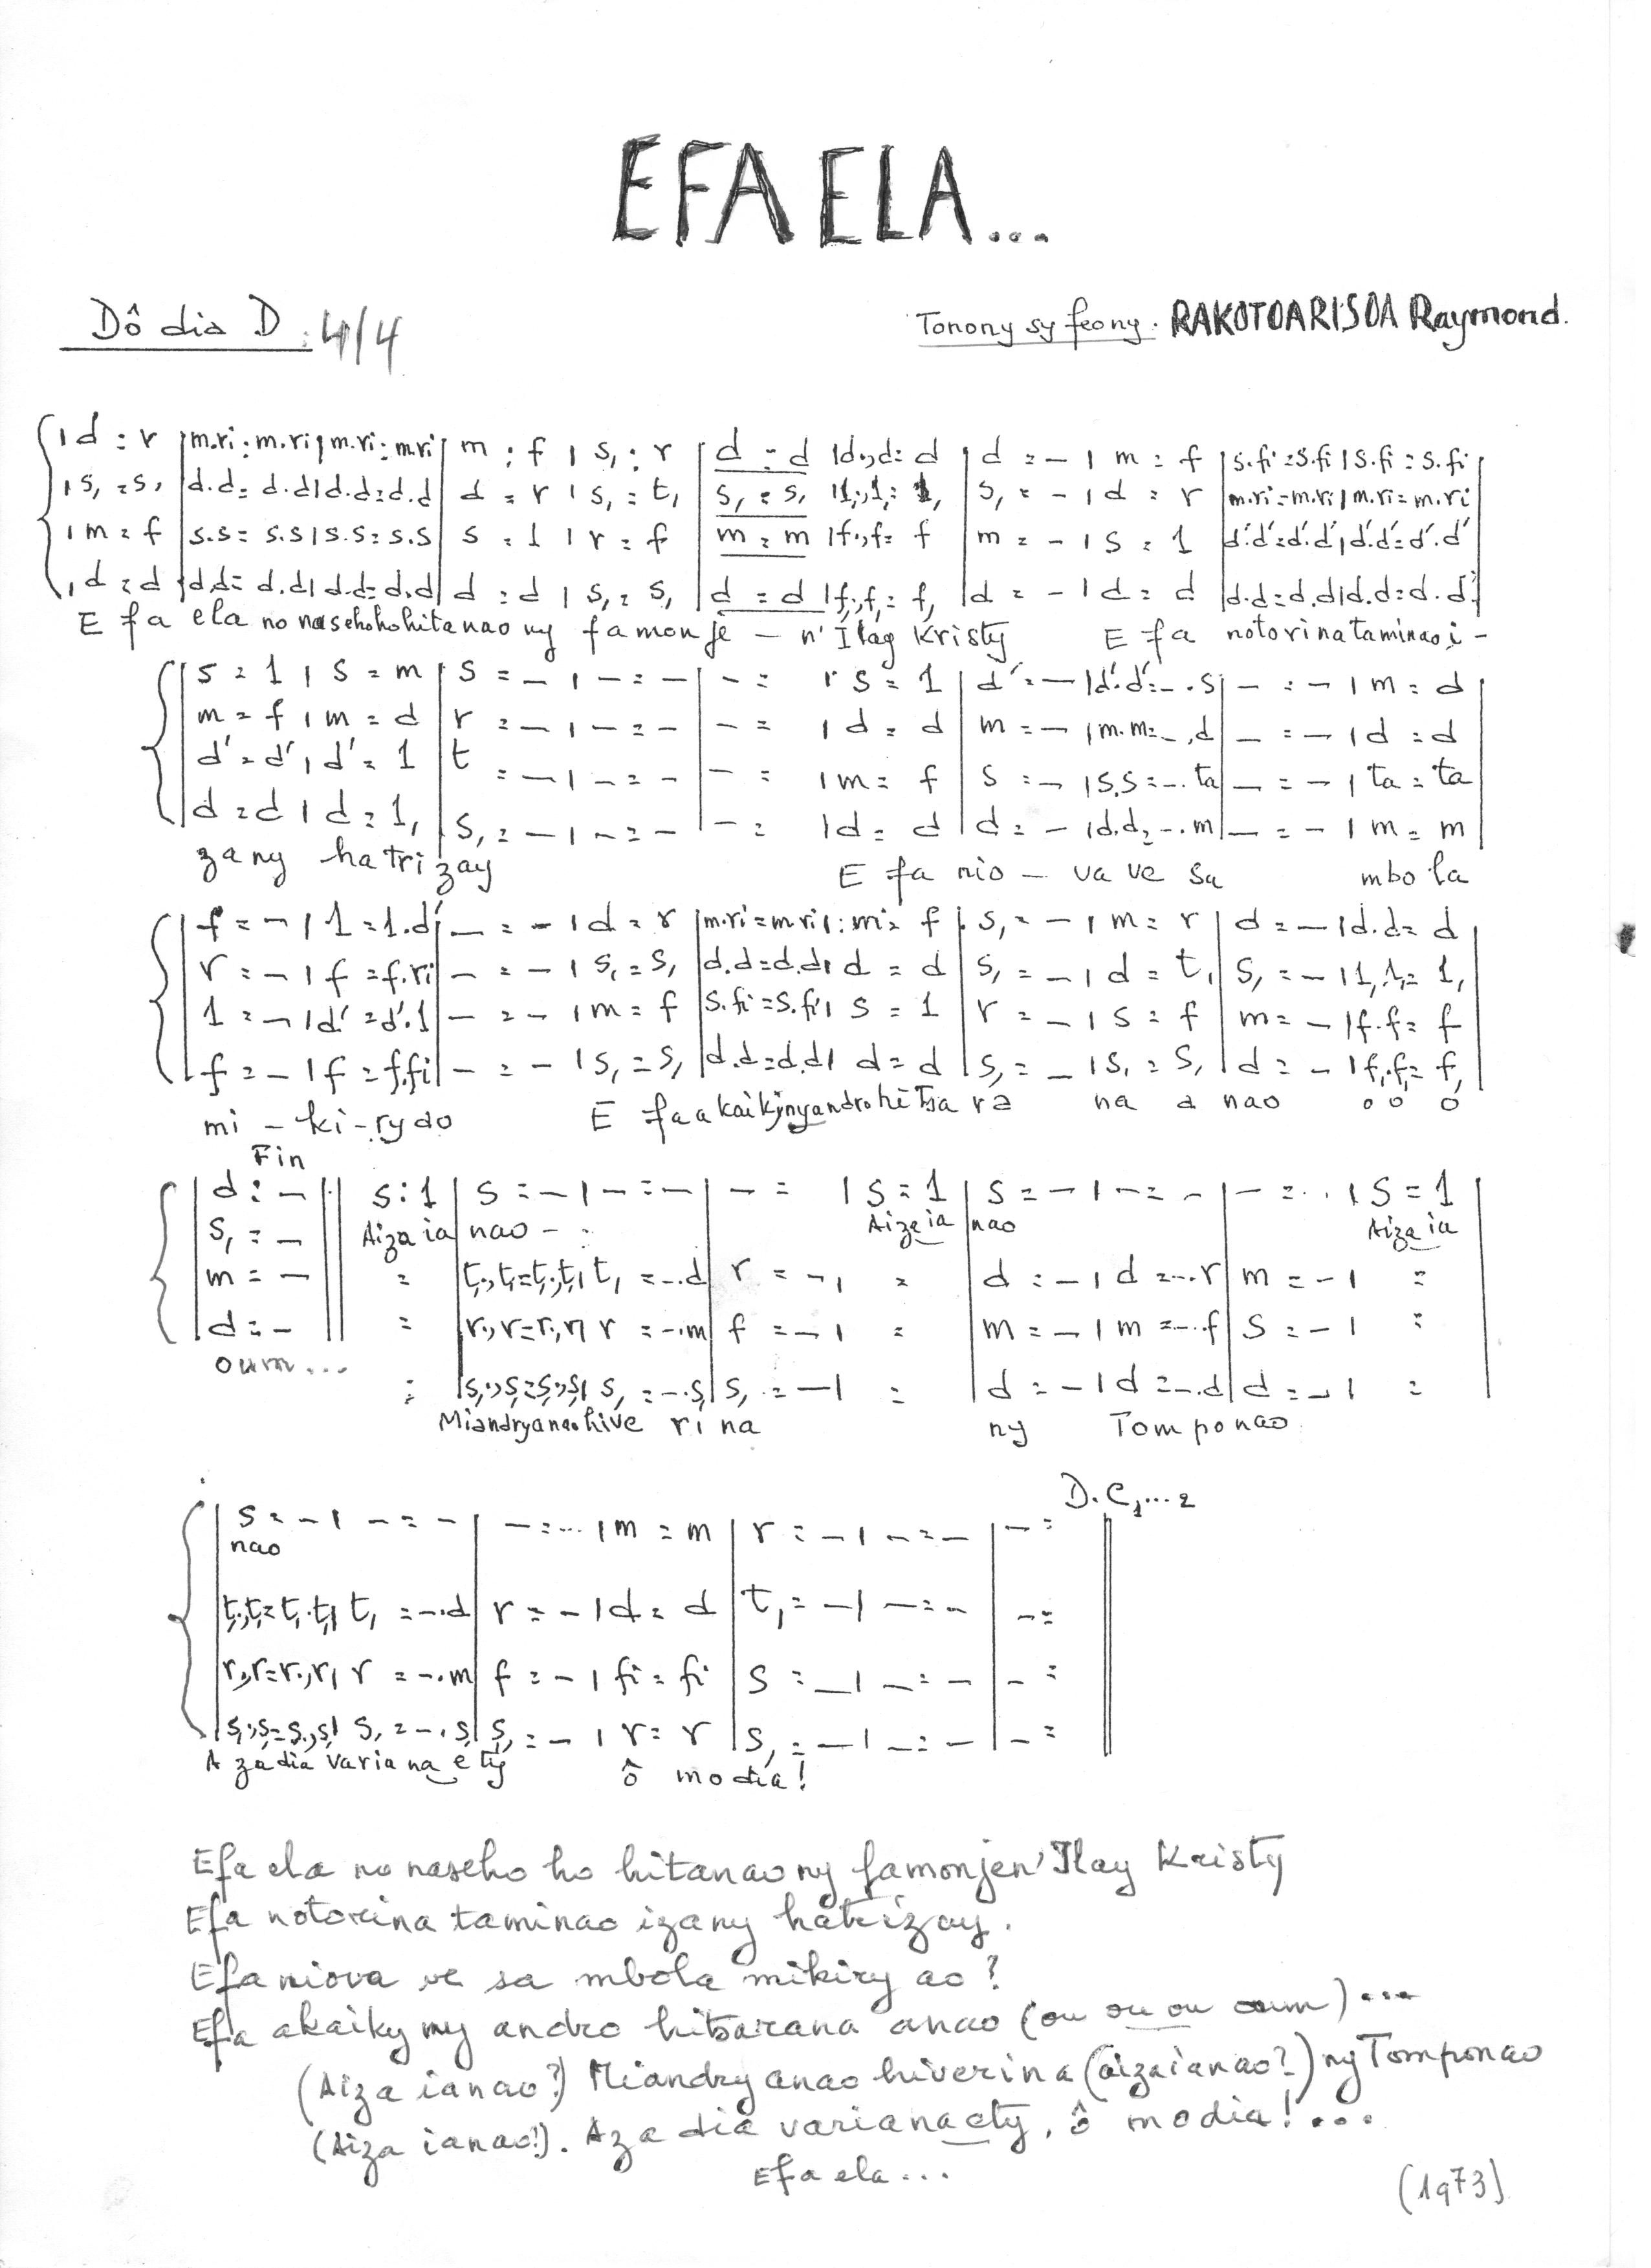 EFA ELA...
Dô dia D : 4/4
Tonony sy feony : RAKOTOARISOA Raymond.
| d : r | m.ri : m.ri | m.ri : m.ri | m : f | s, : r | d : d | d., d : d | d : - | m : f | s.fi : s.fi | s.fi : s.fi |
| s, : s, | d.d : d.d | d.d : d.d | d : r | s, : t, | s, : s, | l,., l, : l, | s, : - | d : r | m.ri : m.ri | m.ri : m.ri
| m : f | s.s : s.s | s.s : s.s | s : l | r : f | m : m | f., f : f | m : - | s : l | d'.d' : d'.d' | d'.d' : d'.d'
| d : d | d.d : d.d | d.d : d.d | d : d | s, : s, | d : d | f,., f, : f, | d : - | d : d | d.d : d.d | d.d : d.d |
E fa ela no naseho ho hitanao ny famonje - n' Ilay Kristy E fa notorina taminao i -
| s : l | s : m | s : - | - : - | - : | s : l | d' : - | d'.d' : - . s | - : - | m : d |
| m : f | m : d | r : - | - : - | - : | d : d | m : - | m.m : - . d | - : - | d : d |
| d' : d' | d' : l | t : - | - : - | - : | m : f | s : - | s.s : - . ta | - : - | ta : ta |
| d : d | d : l, | s, : - | - : - | - : | d : d | d : - | d.d : - . m | - : - | m : m |
zany hatrizay E fa nio - va ve sa mbola
| f : - | l : l.d' | - : - | d : r | m.ri : m.ri | : mi : f | s, : - | m : r | d : - | d.d : d |
| r : - | f : f.ri | - : - | s, : s, | d.d : d.d | d : d | s, : - | d : t, | s, : - | l,.l, : l, |
| l : - | d' : d'.l | - : - | m : f | s.fi : s.fi | s : l | r : - | s : f | m : - | f.f : f |
| f : - | f : f.fi | - : - | s, : s, | d.d : d.d | d : d | s, : - | s, : s, | d : - | f,.f, : f, |
mi - ki - ry ao E fa akaiky ny andro hitsa ra na a nao o o o
Fin
| d : - || s : l | s : - | - : - | - : | s : l | s : - | - : - | - : .. | s : l |
s, : - Aiza ia nao - : Aiza ia nao Aiza ia
| m : - || : | t,., t, : t,., t, | t, : - . d | r : - | : | d : - | d : - . r | m : - | : |
| d : - || : | r., r : r., r | r : - . m | f : - | : | m : - | m : - . f | s : - | : |
oum... : | s,., s, : s,., s, | s, : - . s, | s, : - | : | d : - | d : - . d | d : - | : |
Miandry anao hive ri na ny Tomponao
D.C 1...2
| s : - | - : - | - : ... | m : m | r : - | - : - | - : ||
nao
| t,., t, : t, . t, | t, : - . d | r : - | d : d | t, : - | - : - | - : ||
| r., r : r., r | r : - . m | f : - | fi : fi | s : - | - : - | - : ||
| s,., s, : s,., s, | s, : - . s, | s, : - | r : r | s, : - | - : - | - : ||
A za dia varia na e ty ô modia !
Efa ela no naseho ho hitanao ny famonjen' Ilay Kristy
Efa notorina taminao izany hatrizay.
Efa niova ve sa mbola mikiry ao ?
Efa akaiky ny andro hitsarana anao (ou ou ou oum) ...
(Aiza ianao ?) Miandry anao hiverina (aiza ianao ?) ny Tomponao
(Aiza ianao !). Aza dia variana ety, ô modia ! ...
Efa ela ...
(1973)